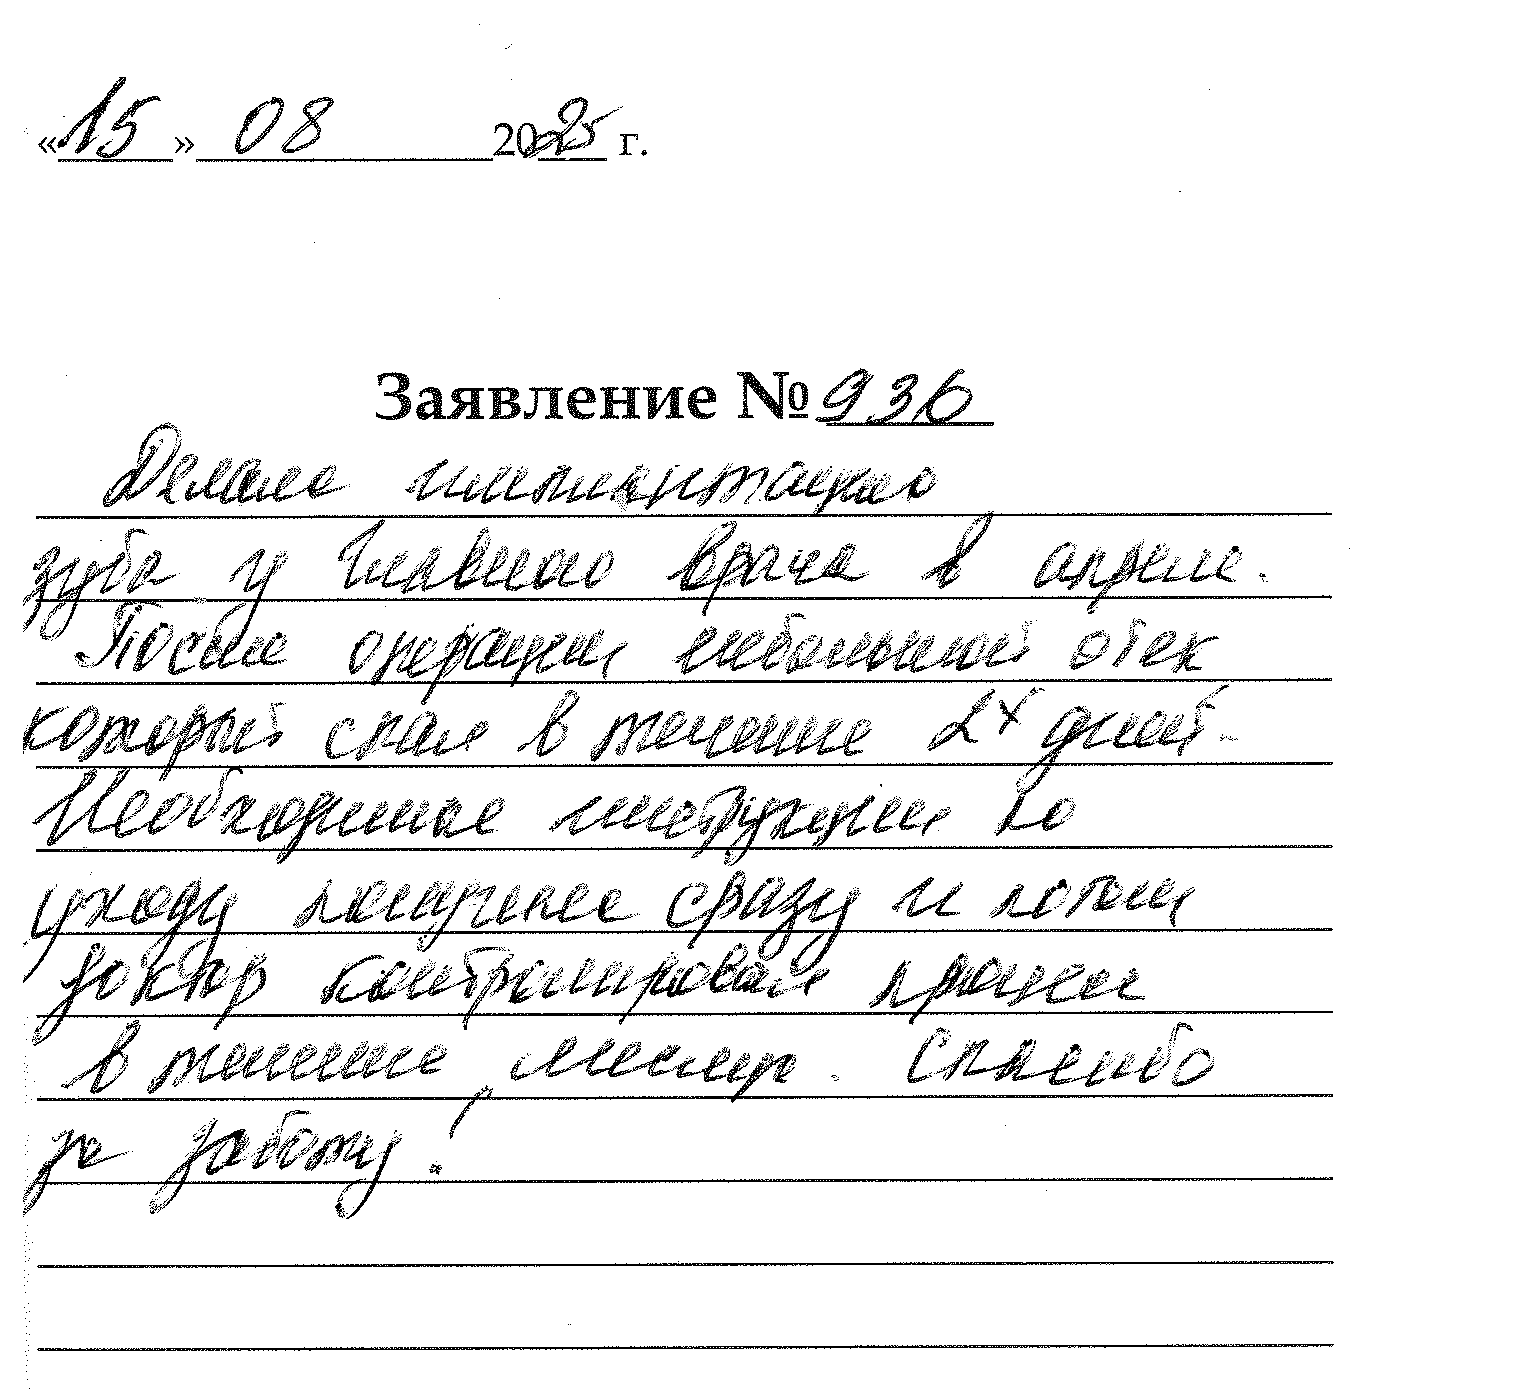 «15» 08 2025 г.
Заявление № 936
Делала имплантацию
зуба у Главного врача в апреле.
После операции небольшой отек
который спал в течение 2х дней.
Необходимые инструкции по
уходу получила сразу и потом
доктор контролировал процесс
в течение месяца. Спасибо
за заботу!